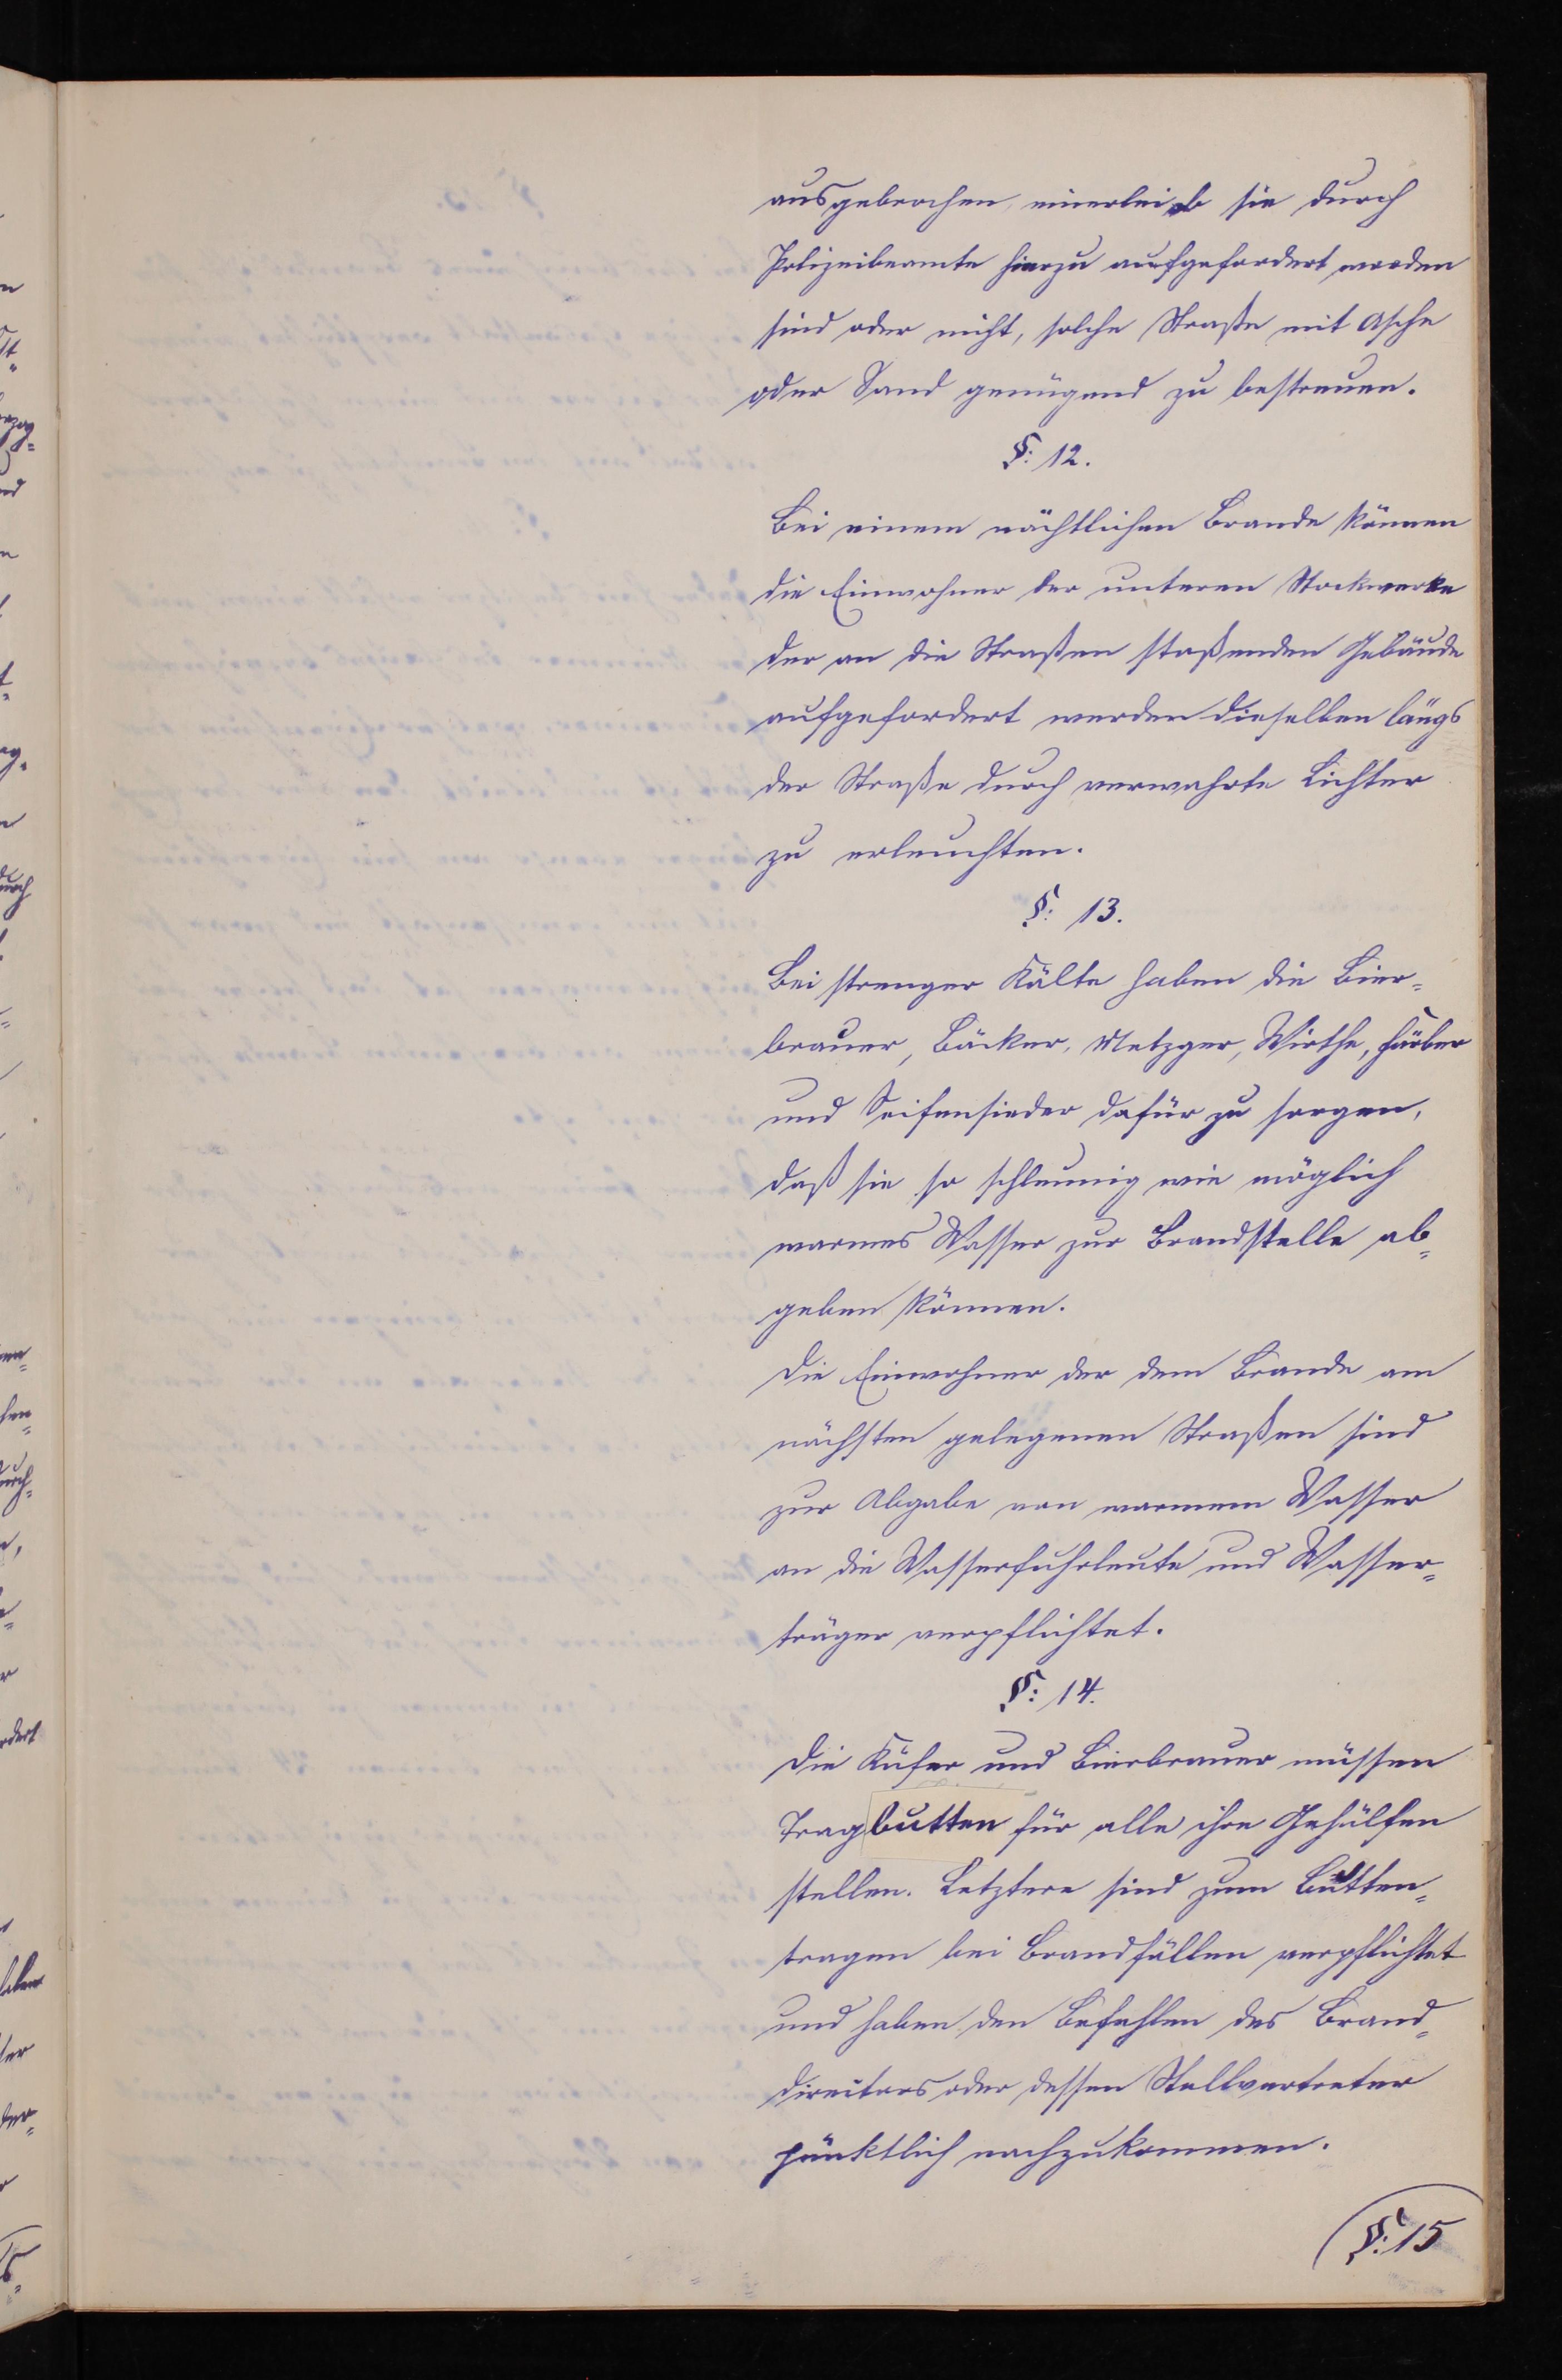 ausgebrochen, einerlei ob sie durch
Polizeibeamte hierzu aufgefordert worden
sind oder nicht, solche Straße mit Asche
oder Sand genügend zu bestreuen.
§: 12.
Bei einem nächtlichen Brande können
die Einwohner der unteren Stockwerke
der an die Straßen stoßenden Gebäude
aufgefordert werden dieselben längs
der Straße durch verwahrte Lichter
zu erleuchten.
§: 13.
Bei strenger Kälte haben die Bier=
brauer, Bäcker, Metzger, Wirthe, Färber
und Seifensieder dafür zu sorgen,
daß sie so schleunig wie möglich
warmes Wasser zur Brandstelle ab=
geben können.
Die Einwohner der dem Brande am
nächsten gelegenen Straßen sind
zur Abgabe von warmem Wasser
an die Wasserfuhrleute und Wasser=
träger verpflichtet.
§: 14.
Die Küfer und Bierbrauer müssen
Tragbutten für alle ihre Gehülfen
stellen. Letztere sind zum Butten=
tragen bei Brandfällen verpflichtet
und haben den Befehlen des Brand=
direktors oder dessen Stellvertreter
pünktlich nachzukommen.
§: 15